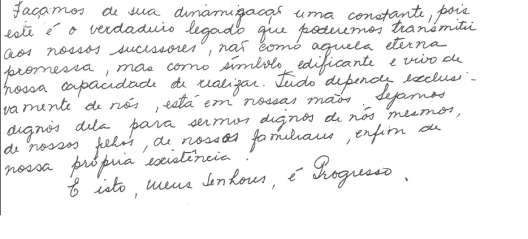 Façamos de sua dinamização uma constante, pois
este é o verdadeiro legado que poderemos transmitir
aos nossos sucessores, não como aquela eterna
promessa, mas como símbolo edificante e vivo de
nossa capacidade de realizar. Tudo depende exclusi-
vamente de nós, está em nossas mãos. Sejamos
dignos dela para sermos dignos de nós mesmos,
de nossos filhos, de nossos familiares, enfim de
nossa própria existência.
E isto, meus Senhores, é Progresso.